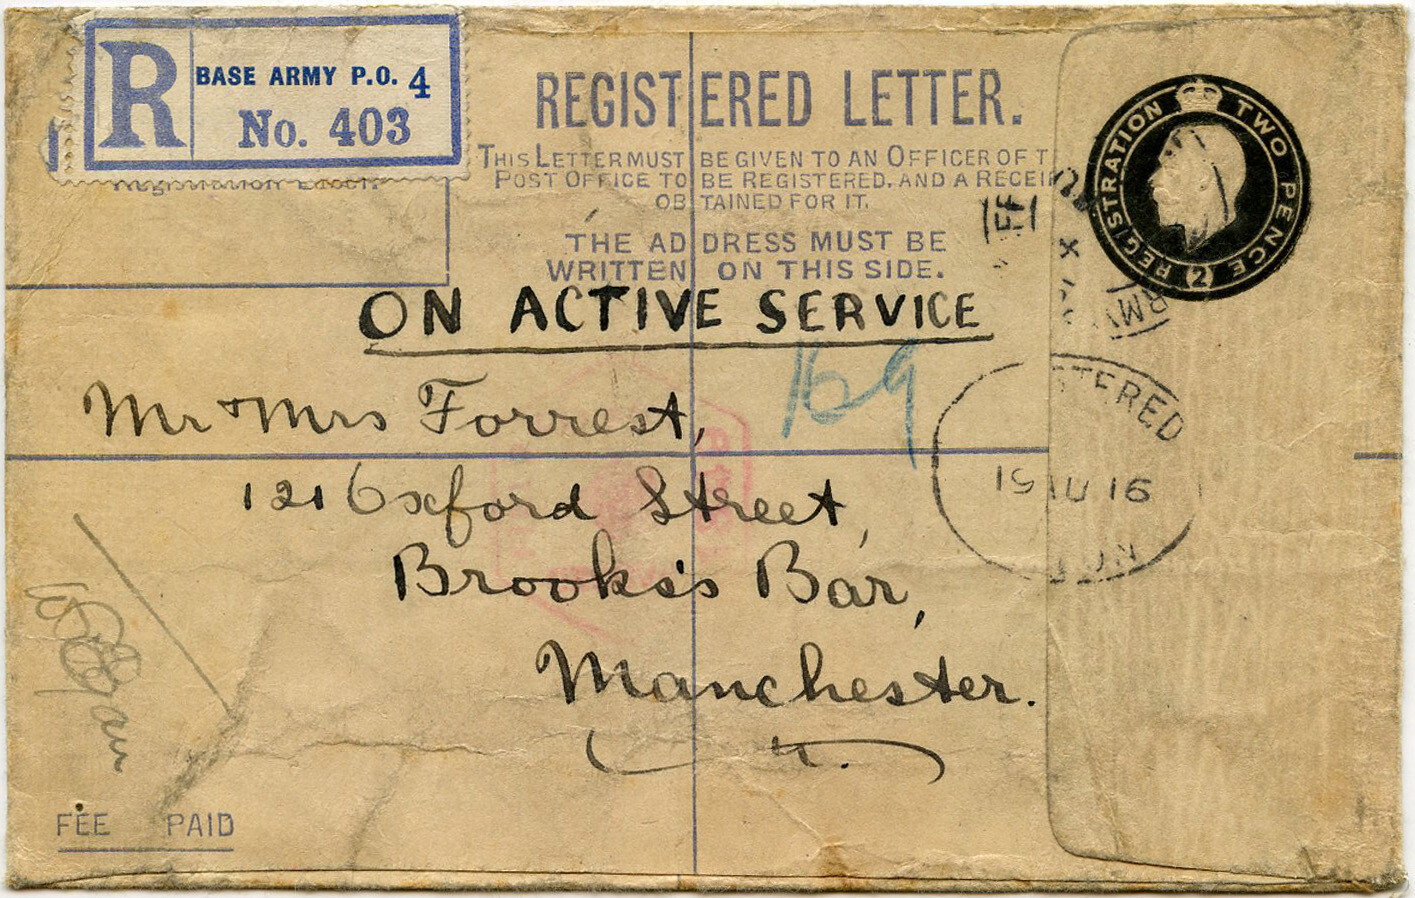 R BASE ARMY P.O. 4
No. 403
REGISTERED LETTER.
THIS LETTER MUST BE GIVEN TO AN OFFICER OF T
POST OFFICE TO BE REGISTERED, AND A RECEI
OBTAINED FOR IT.
THE ADDRESS MUST BE
WRITTEN ON THIS SIDE.
REGISTRATION TWO PENCE (2)
ON ACTIVE SERVICE
169
Mr & Mrs Forrest,
121 Oxford Street,
Brooks's Bar,
Manchester.
STERED
16
FEE PAID